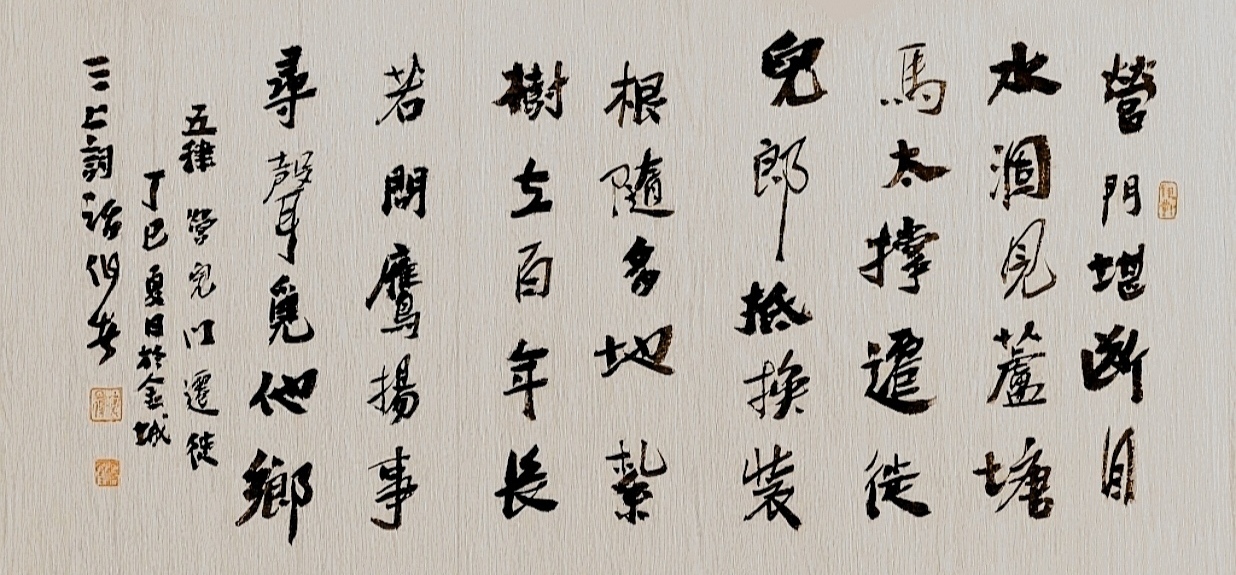 營門堪斷目
水涸見蘆塘
馬太撐遷徙
兒郎抵換裝
根隨多地紮
樹立百年長
若問鷹揚事
尋聲覓他鄉
五律 營兒門遷徙
丁巳夏日於金城
三上詞話伯安